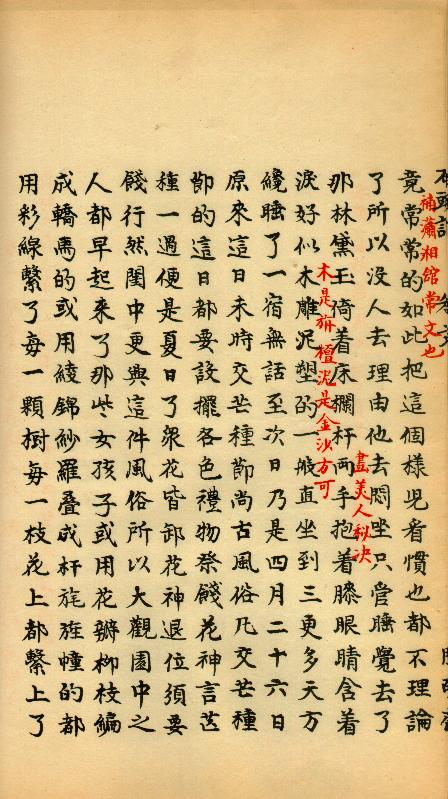 竟常常的如此把這個樣兒看慣也都不理論
補瀟湘舘常文也
了所以没人去理由他去悶坐只管睡覺去了
那林黛玉倚着床欄杆兩手抱着膝眼睛含着
畫美人秘訣
淚好似木雕泥塑的一般直坐到三更多天方
木是旃檀泥是金沙方可
纔睡了一宿無話至次日乃是四月二十六日
原來這日未時交芒種節尚古風俗凡交芒種
節的這日都要設擺各色禮物祭餞花神言芒
種一過便是夏日了衆花皆卸花神退位須要
餞行然閨中更興這件風俗所以大觀園中之
人都早起來了那些女孩子或用花瓣柳枝編
成轎馬的或用綾錦紗羅叠成杆旄旌幢的都
用彩線繫了每一顆樹每一枝花上都繫上了